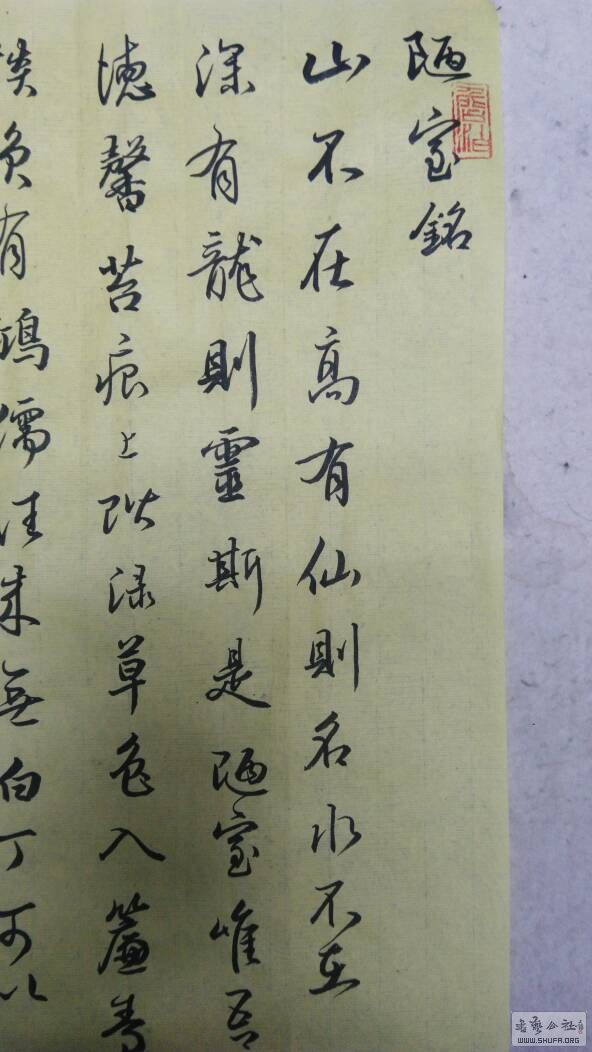 陋室銘
山不在高有仙則名水不在
深有龍則靈斯是陋室唯吾
德馨苔痕上阶绿草色入簾青
談笑有鴻儒往来無白丁可以
書藝公社
WWW.SHUFA.ORG